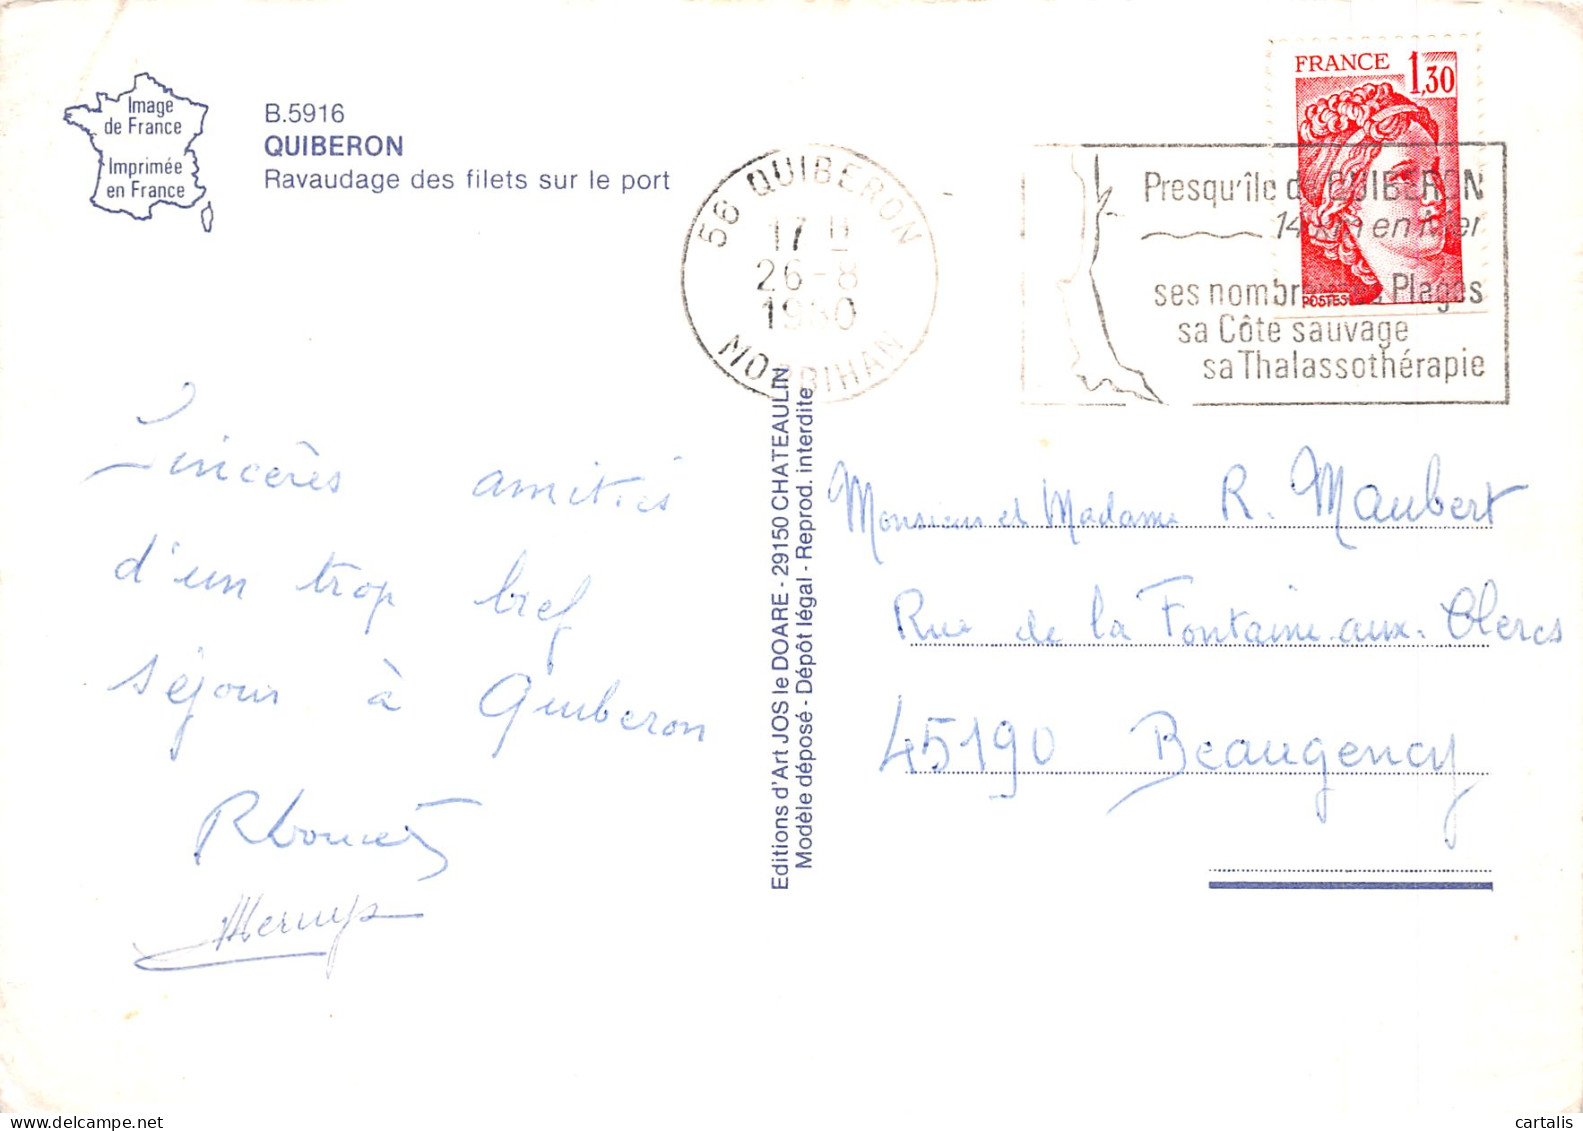 Image
de France
Imprimée
en France
B.5916
QUIBERON
Ravaudage des filets sur le port
56 QUIBERON
17 H
26-8
1980
MORBIHAN
FRANCE 1,30
POSTES
Presqu'île de QUIBERON
14 km en Mer
ses nombreuses Plages
sa Côte sauvage
sa Thalassothérapie
Sincères amitiés
d'un trop bref
séjour à Quiberon
Editions d'Art JOS le DOARE - 29150 CHATEAULIN
Modèle déposé - Dépôt légal - Reprod. interdite
Monsieur et Madame R. Maubert
Rue de la Fontaine-aux-Clercs
45190 Beaugency
cartalis